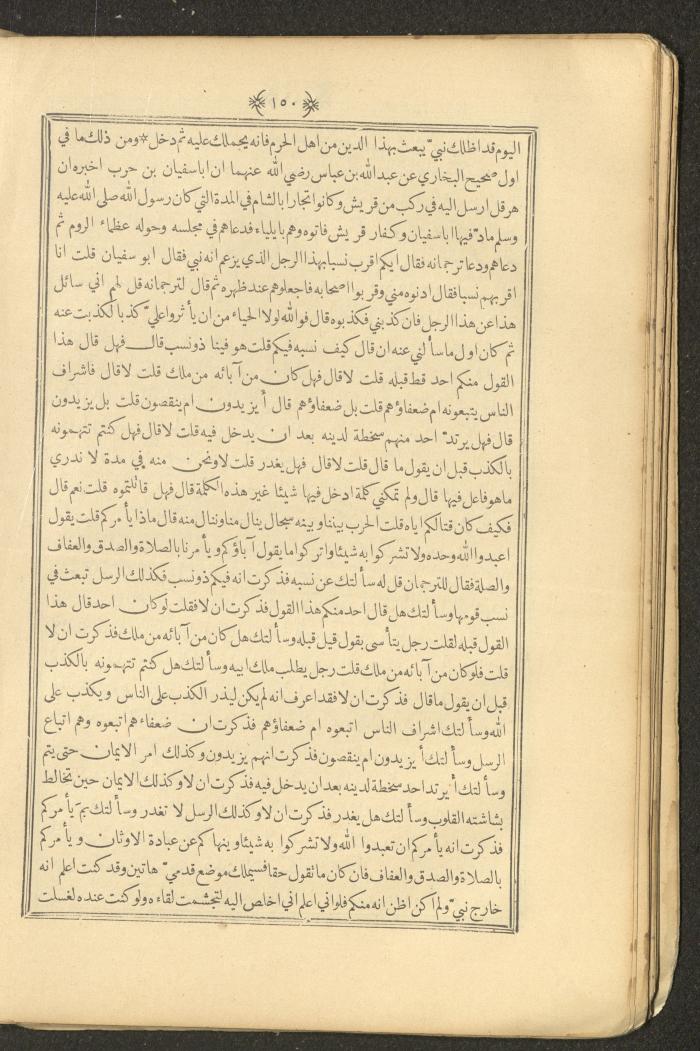 ١٥٠
اليوم قد اظلك نبيّ يبعث بهذا الدين من اهل الحرم فانه يحملك عليه ثم دخل * ومن ذلك ما في
اول صحيح البخاري عن عبد الله بن عباس رضي الله عنهما ان ابا سفيان بن حرب اخبره ان
هرقل ارسل اليه في ركب من قريش وكانوا تجارا بالشام في المدة التي كان رسول الله صلى الله عليه
وسلم مادّ فيها ابا سفيان وكفار قريش فاتوه وهم بايلياء فدعاهم في مجلسه وحوله عظماء الروم ثم
دعاهم ودعا ترجمانه فقال ايكم اقرب نسبا بهذا الرجل الذي يزعم انه نبي فقال ابو سفيان قلت انا
اقربهم نسبا فقال ادنوه مني وقربوا اصحابه فاجعلوهم عند ظهره ثم قال لترجمانه قل لهم اني سائل
هذا عن هذا الرجل فان كذبني فكذبوه قال فوالله لولا الحياء من ان يأثروا عليّ كذبا لكذبت عنه
ثم كان اول ما سألني عنه ان قال كيف نسبه فيكم قلت هو فينا ذو نسب قال فهل قال هذا
القول منكم احد قط قبله قلت لا قال فهل كان من آبائه من ملك قلت لا قال فاشراف
الناس يتبعونه ام ضعفاؤهم قلت بل ضعفاؤهم قال أيزيدون ام ينقصون قلت بل يزيدون
قال فهل يرتدّ احد منهم سخطة لدينه بعد ان يدخل فيه قلت لا قال فهل كنتم تتهمونه
بالكذب قبل ان يقول ما قال قلت لا قال فهل يغدر قلت لا ونحن منه في مدة لا ندري
ما هو فاعل فيها قال ولم تمكني كلمة ادخل فيها شيئا غير هذه الكلمة قال فهل قاتلتموه قلت نعم قال
فكيف كان قتالكم اياه قلت الحرب بيننا وبينه سجال ينال منا وننال منه قال ماذا يأمركم قلت يقول
اعبدوا الله وحده ولا تشركوا به شيئا واتركوا ما يقول آباؤكم ويأمرنا بالصلاة والصدق والعفاف
والصلة فقال للترجمان قل له سألتك عن نسبه فذكرت انه فيكم ذو نسب فكذلك الرسل تبعث في
نسب قومها وسألتك هل قال احد منكم هذا القول فذكرت ان لا فقلت لو كان احد قال هذا
القول قبله لقلت رجل يتأسى بقول قيل قبله وسألتك هل كان من آبائه من ملك فذكرت ان لا
قلت فلو كان من آبائه من ملك قلت رجل يطلب ملك ابيه وسألتك هل كنتم تتهمونه بالكذب
قبل ان يقول ما قال فذكرت ان لا فقد اعرف انه لم يكن ليذر الكذب على الناس ويكذب على
الله وسألتك اشراف الناس اتبعوه ام ضعفاؤهم فذكرت ان ضعفاءهم اتبعوه وهم اتباع
الرسل وسألتك أيزيدون ام ينقصون فذكرت انهم يزيدون وكذلك امر الايمان حتى يتم
وسألتك أيرتد احد سخطة لدينه بعد ان يدخل فيه فذكرت ان لا وكذلك الايمان حين تخالط
بشاشته القلوب وسألتك هل يغدر فذكرت ان لا وكذلك الرسل لا تغدر وسألتك بمَ يأمركم
فذكرت انه يأمركم ان تعبدوا الله ولا تشركوا به شيئا وينهاكم عن عبادة الاوثان ويأمركم
بالصلاة والصدق والعفاف فان كان ما تقول حقا فسيملك موضع قدميّ هاتين وقد كنت اعلم انه
خارج نبيّ ولم اكن اظن انه منكم فلو اني اعلم اني اخلص اليه لتجشمت لقاءه ولو كنت عنده لغسلت